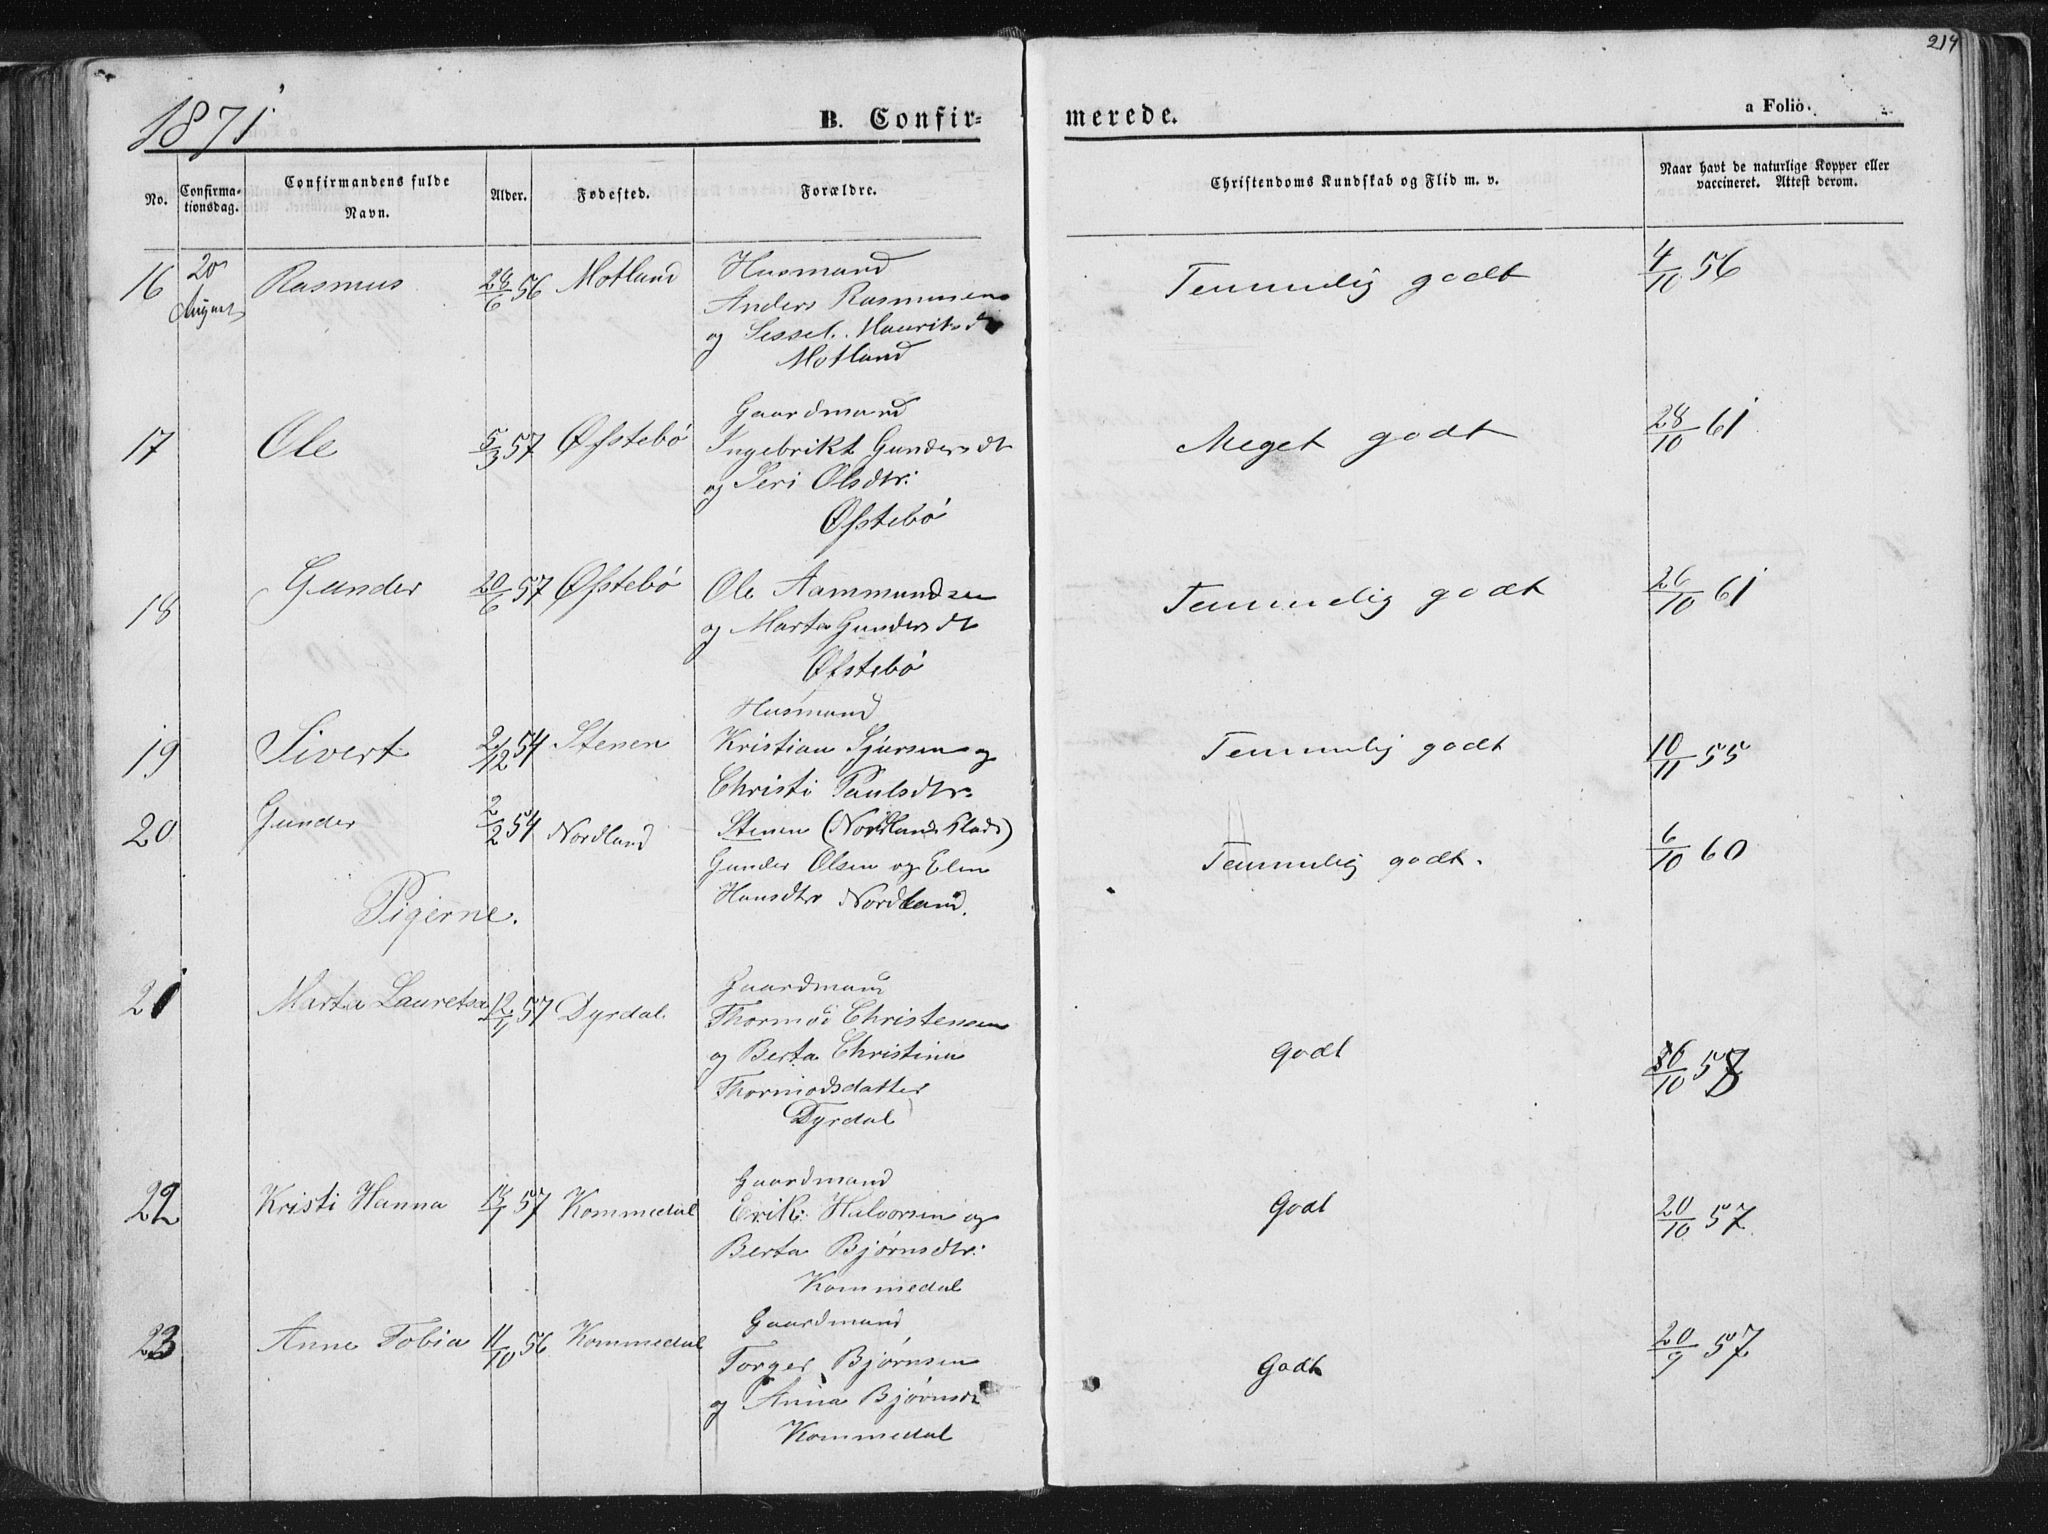 214
1871
B. Confirmerede.
a Folio.
No.
Confirmationsdag.
Confirmandens fulde Navn.
Alder.
Fødested.
Forældre.
Christendoms Kundskab og Flid m. v.
Naar havt de naturlige Kopper eller vaccineret. Attest derom.
16 20 August Rasmus 28/6 56 Motland Husmand Temmelig godt 4/10 56
Anders Rasmusen
og Sissel Mauritsdr
Motland
17 Ole 5/3 57 Øfstebø Gaardmand Meget godt 28/10 61
Ingebrikt Gundersdt
og Seri Olsdtr.
Øfstebø
18 Gunder 20/6 57 Øfstebø Ole Aammundsen Temmelig godt 26/10 61
og Marta Gundersdt
Øfstebø
Husmand
19 Sivert 2/12 54 Stenen Kristian Sjursen og Temmelig godt 10/11 55
Christi Paulsdtr.
Stenen (Nordlands Plads)
20 Gunder 2/2 54 Nordland Gunder Olsen og Elen Temmelig godt. 6/10 60
Hansdtr Nordland.
Pigerne.
21 Marta Lauretsa 12/1 57 Dyrdal Gaardmand Godt /10 58
Thormod Christensen
og Berta Christina
Thormodsdatter
Dyrdal
22 Kristi Hanna 18/1 57 Kommedal Gaardmand Godt 20/10 57
Erik Halvorsen og
Berta Bjørnsdtr.
Kommedal
23 Anne Tobia 11/10 56 Kommedal Gaardmand Godt 20/9 57
Torger Bjørnsen
og Anna Bjørnsdt
Kommedal